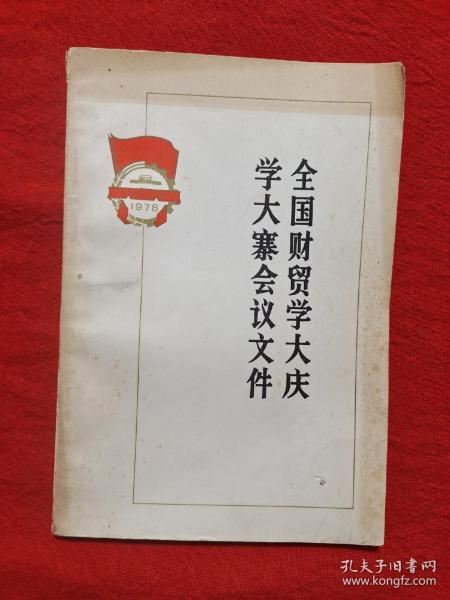 全国财贸学大庆
学大寨会议文件
1978
孔夫子旧书网
www.kongfz.com